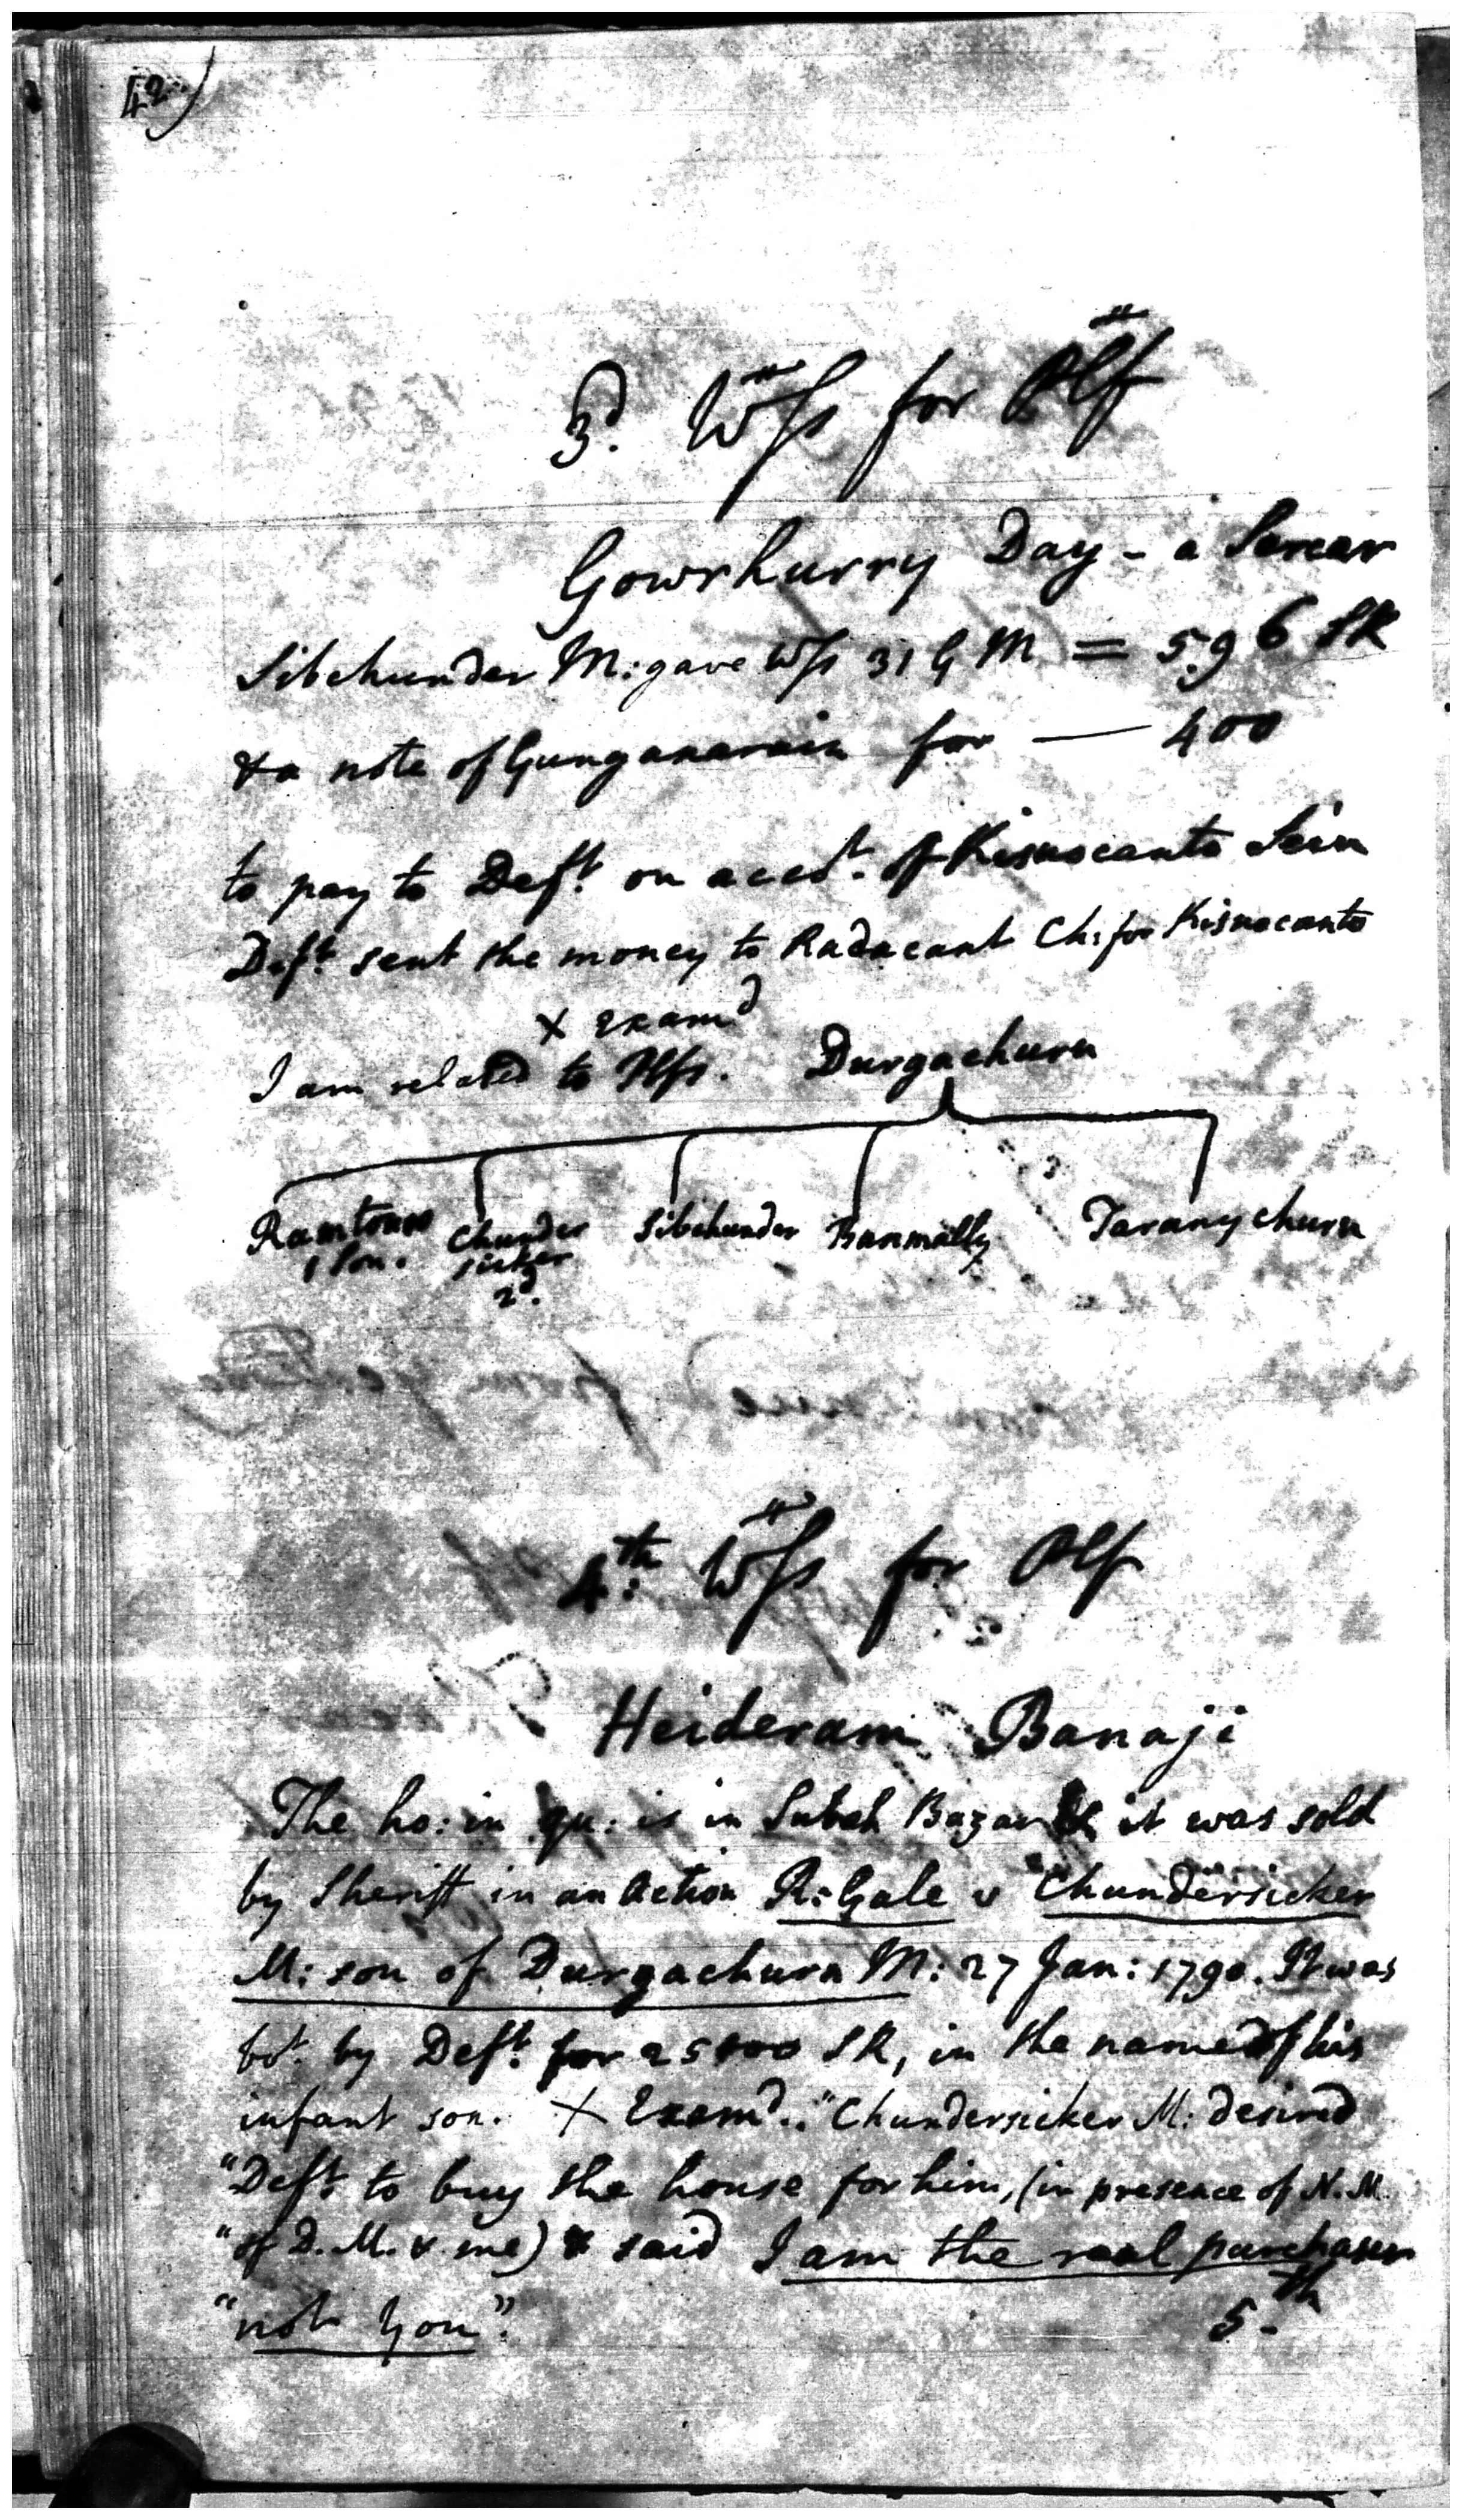 42)
3d. Wss for Plf
Gowrhurry Day - a Sircar
Sibchunder M: gave Wss 31 G M = 596 SR
& a note of Gunganarain for — 400
to pay to Deft. on acct. of Kisnocanto Sein
Deft. sent the money to Radacant Ch: for Kisnocanto
X Examd
I am related to Plfs. Durgachurn
Ramtonoo Chunder Sibchunder Banmally Taranychurn
1 Son. sicker
2d.
4th: Wss for Plf
Heideram Banaji
The ho: in qu: is in Subah Bazar & it was sold
by Sheriff in an Action R: Gale v Chundersicker
M: son of Durgachurn M: 27 Jan: 1790. It was
bt. by Deft. for 25100 SR, in the name of his
infant son. X Examd.. "Chundersicker M: desired
"Deft to buy the house for him, (in presence of N. M.
"of D. M. & me) & said I am the real purchaser
"not you".
5.th